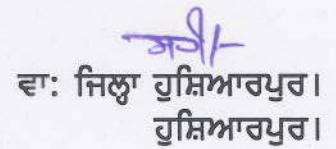 ਸਹੀ/-
ਵਾ: ਜਿਲ੍ਹਾ ਹੁਸ਼ਿਆਰਪੁਰ।
ਹੁਸ਼ਿਆਰਪੁਰ।